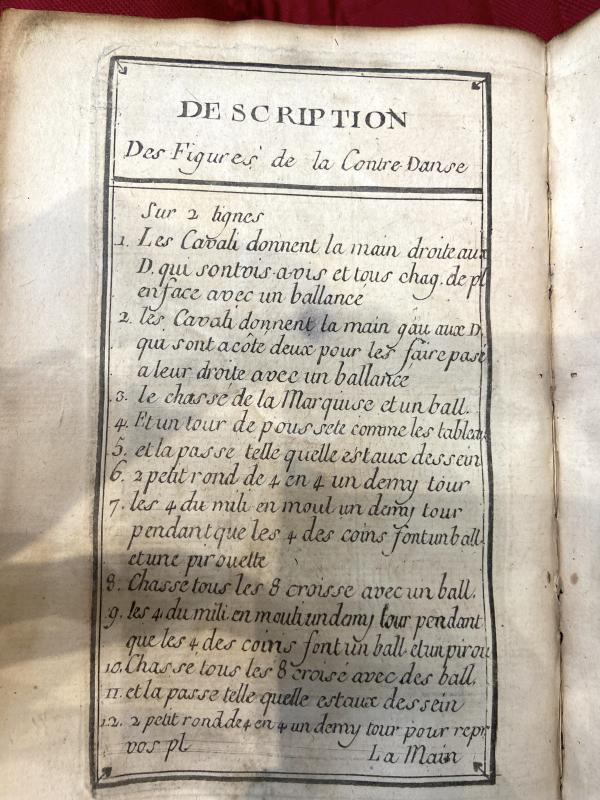 DESCRIPTION
Des Figures de la Contre-Danse
Sur 2 lignes
1. Les Cavali donnent la main droite aux
D. qui sont vis-a-vis et tous chag. de pl
en face avec un ballance
2. les Cavali donnent la main gau aux D.
qui sont a côté deux pour les faire pase
a leur droite avec un ballance
3. le chassé de la Marquise et un ball.
4. Et un tour de poussete comme les tableau
5. et la passe telle quelle est aux dessein
6. 2 petit rond de 4 en 4 un demy tour
7. les 4 du mili en moul un demy tour
pendant que les 4 des coins font un ball.
et une pirouette
8. Chasse tous les 8 croisse avec un ball.
9. les 4 du mili. en mouli un demy tour pendant
que les 4 des coins font un ball et un pirou
10. Chassé tous les 8 croisé avec des ball.
11. et la passe telle quelle est aux dessein
12. 2 petit rond de 4 en 4 un demy tour pour repr
vos pl
La Main